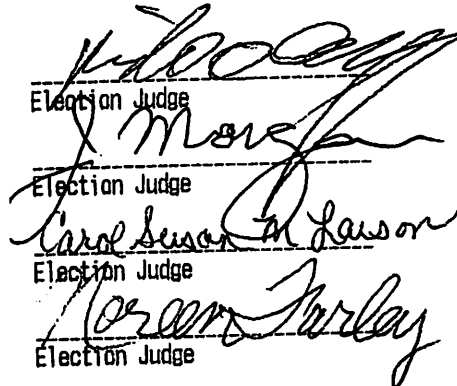 Election Judge
J Morgan
Election Judge
Carol Susan M Larson
Election Judge
Noreen Farley
Election Judge